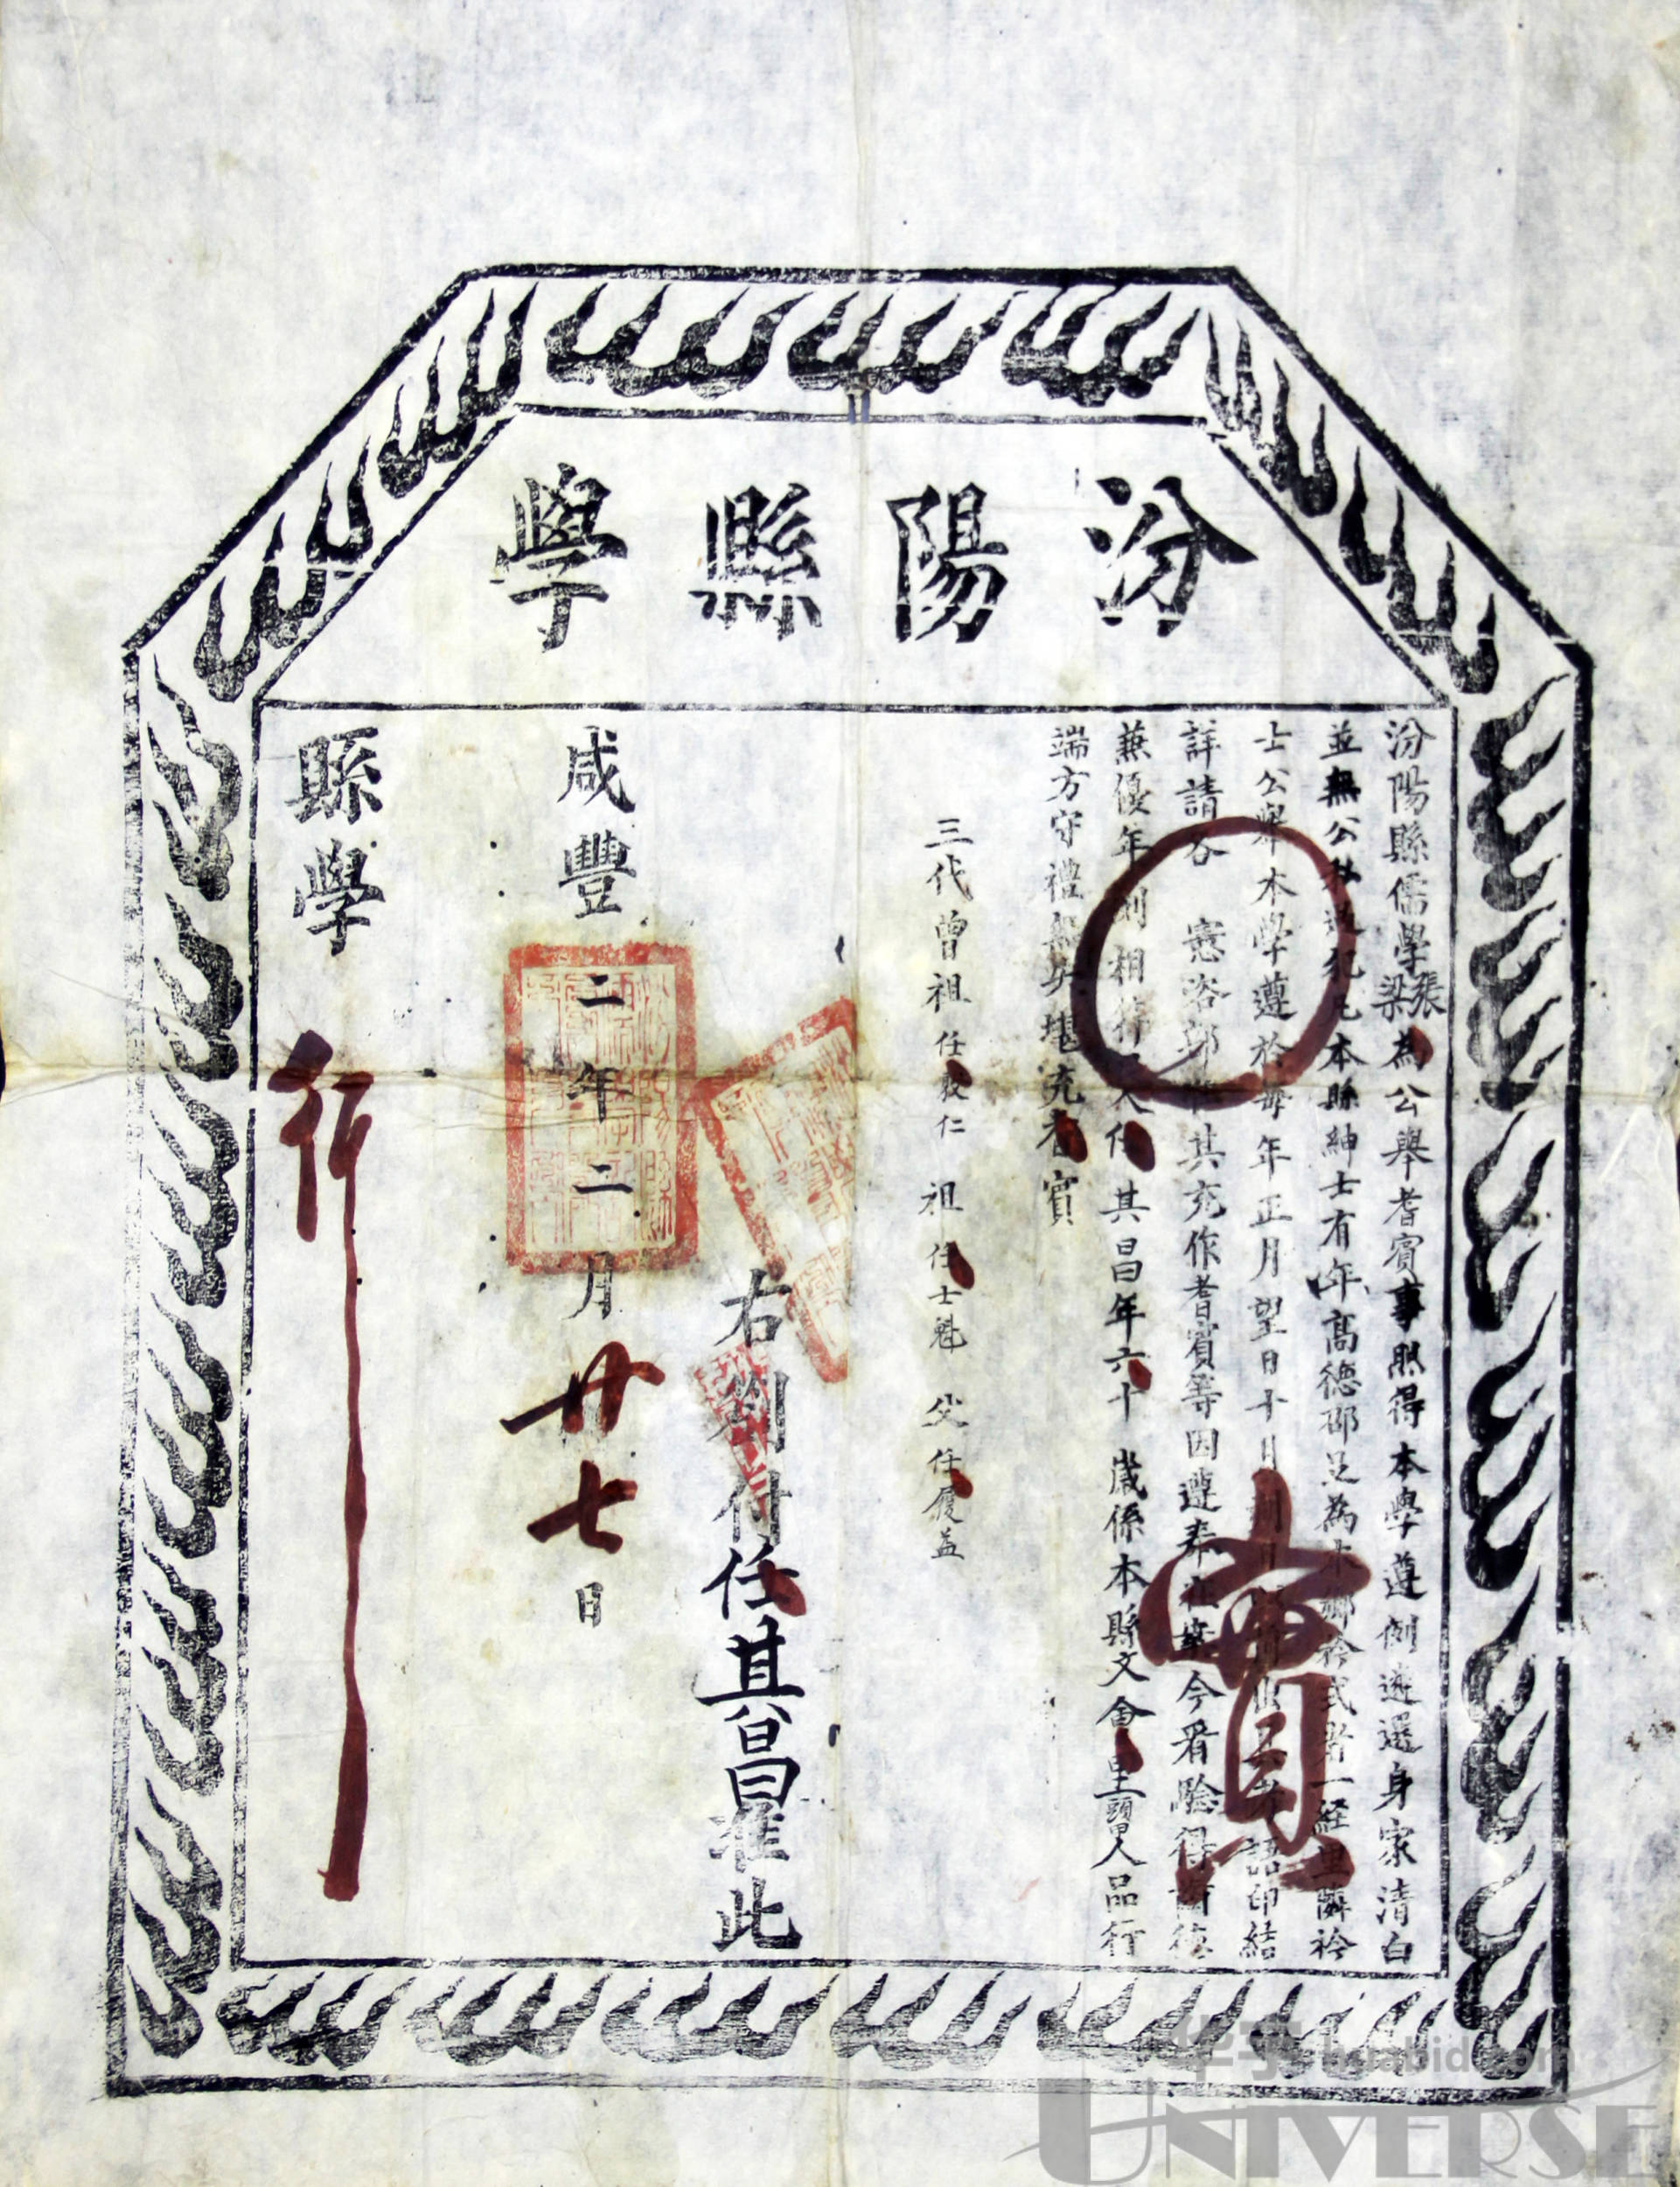 汾陽縣學
汾陽縣儒學張梁為公舉耆賓事照得本學遵例遴選身家清白
並無公私過犯凡本縣紳士有年高德邵足為本鄉矜式者一經里鄰衿
士公舉本學遵於每年正月望日十月 語印結
詳請各 憲咨部 其充作耆賓等因遵奉在案今看驗得
兼優年 相符 人任其昌年六十歲係本縣文會里頭甲人品行
端方守禮無失堪充耆賓
三代曾祖任敦仁 祖任士魁 父任履益
右劄付任其昌准此
咸豐二年二月廿七日
縣學 行
實
华宇 huabid.com
UNIVERSE